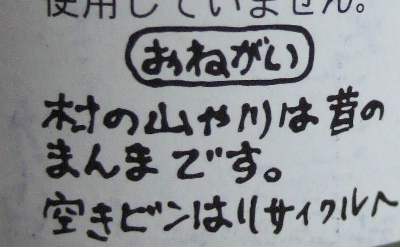 使用していません。
おねがい
村の山や川は昔の
まんまです。
空きビンはリサイクルへ